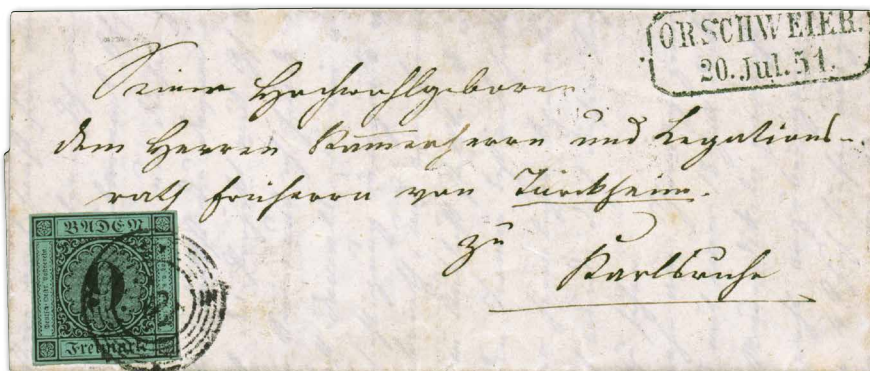 ORSCHWEIER.
20. Jul. 51.
Seiner Hochwohlgeboren
dem Herren Kammerherrn und Legations-
rath Freiherrn von Türckheim.
zu
Karlsruhe
BADEN
Freimarke